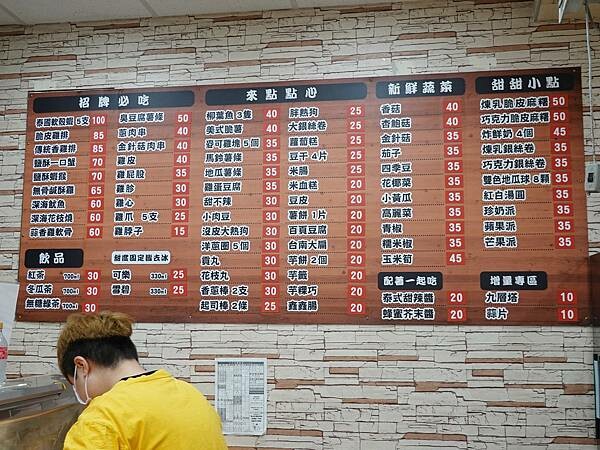 招牌必吃
泰國軟殼蝦 5支 100
脆皮雞排 85
傳統香雞排 85
鹽酥一口蟹 70
鹽酥蝦猴 70
無骨鹹酥雞 65
深海魷魚 60
深海花枝燒 60
蒜香雞軟骨 60
臭豆腐薯條 50
蔥肉串 40
金針菇肉串 40
雞皮 40
雞屁股 35
雞胗 30
雞心 30
雞爪 5支 25
雞脖子 15
飲品
紅茶 700ml 30
冬瓜茶 700ml 30
無糖綠茶 700ml 30
甜度固定無去冰
可樂 330ml 25
雪碧 330ml 25
來點點心
柳葉魚 3隻 40
美式脆薯 40
麥可雞塊 5個 35
馬鈴薯條 35
地瓜薯條 35
雞蛋豆腐 35
甜不辣 30
小肉豆 30
沒皮大熱狗 30
洋蔥圈 5個 30
貢丸 30
花枝丸 30
香蔥棒 2支 30
起司棒 2條 30
胖熱狗 25
大銀絲卷 25
蘿蔔糕 25
豆干 4片 25
米腸 25
米血糕 20
豆皮 20
薯餅 1片 20
百頁豆腐 20
台南大扁 20
芋餅 2個 20
芋籤 20
芋粿巧 20
鑫鑫腸 20
新鮮蔬菜
香菇 40
杏鮑菇 40
金針菇 35
茄子 35
四季豆 35
花椰菜 35
小黃瓜 35
高麗菜 35
青椒 35
糯米椒 35
玉米筍 45
配著一起吃
泰式甜辣醬 20
蜂蜜芥末醬 20
甜甜小點
煉乳脆皮麻糬 50
巧克力脆皮麻糬 50
炸鮮奶 4個 45
煉乳銀絲卷 35
巧克力銀絲卷 35
雙色地瓜球 8顆 35
紅白湯圓 35
珍奶派 35
蘋果派 35
芒果派 35
增量專區
九層塔 10
蒜片 10